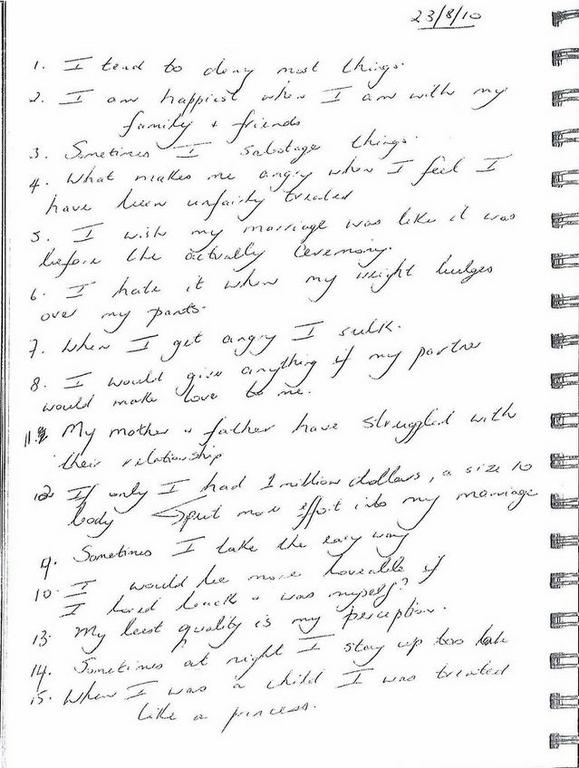 23/8/10
1. I tend to deny most things.
2. I am happiest when I am with my
family + friends
3. Sometimes I sabotage things.
4. What makes me angry when I feel I
have been unfairly treated
5. I wish my marriage was like it was
before the actually Ceremony.
6. I hate it when my weight bulges
over my pants.
7. When I get angry I sulk.
8. I would give anything if my partner
would make love to me.
11. My mother + father have struggled with
their relationship
12 If only I had 1 million dollars, a size 10
body put more effort into my marriage
9. Sometimes I take the easy way
10. I would be more loveable if
I loved back + was myself?
13. My best quality is my perception.
14. Sometimes at night I stay up too late
15. When I was a child I was treated
like a princess.